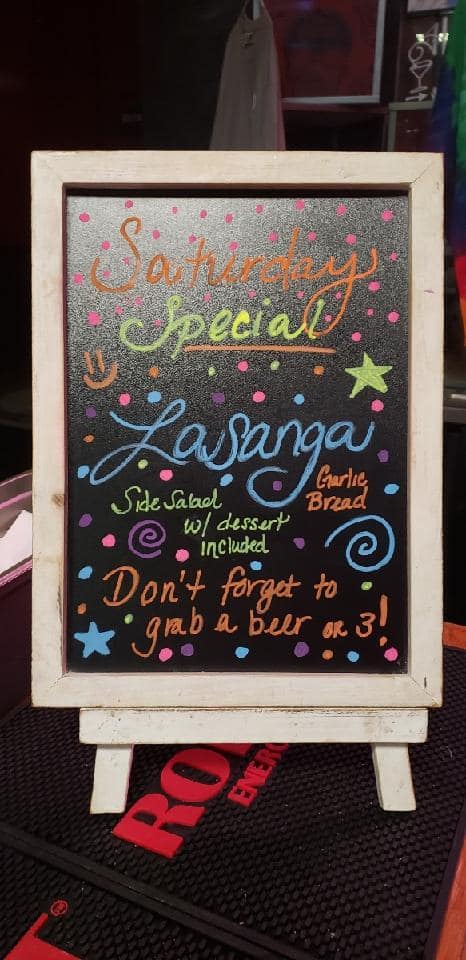 Saturday
Special
Lasanga
Garlic
Bread
Side Salad
w/ dessert
included
Don't forget to
grab a beer or 3!
ENERG
®